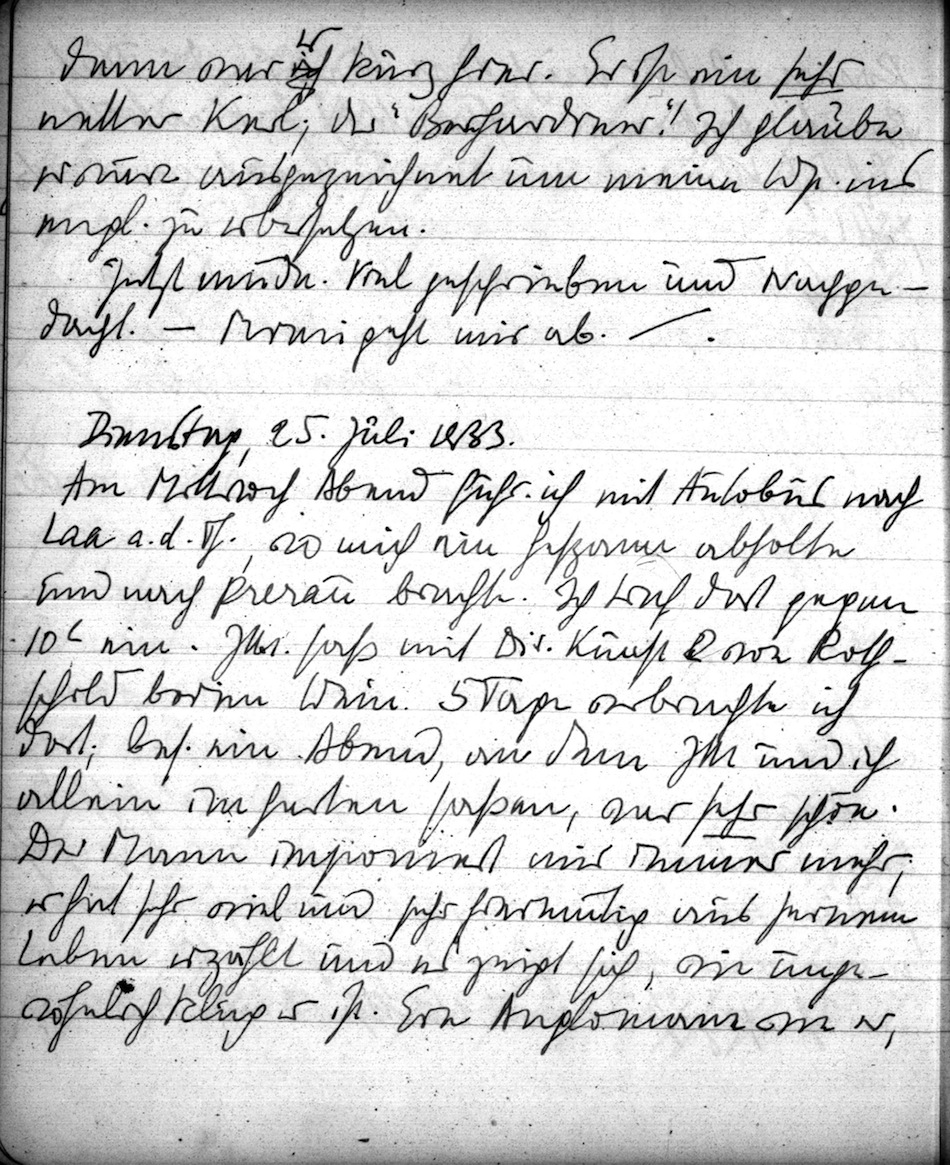 dann war er kurz hier. Er ist ein sehr
netter Kerl; der "Bernardiner"! Ich glaube
er wäre ausgezeichnet um meine Wp. ins
engl. zu übersetzen.
Jetzt müde. Viel geschrieben und Nachge-
dacht. — Meni geht mir ab. —.
Dienstag, 25. Juli 1933.
Am Mittwoch Abend fuhr ich mit Autobus nach
Laa a.d. Th., wo mich ein Gespann abholte
und nach Prerau brachte. Ich traf dort gegen
10h ein. saß mit Dir. von Roth-
schild beim Wein. 5 Tage verbrachte ich
dort; bes. ein Abend, an dem und ich
allein im Garten saßen, war sehr schön.
Der Mann imponiert mir immer mehr;
er hat sehr viel und sehr freimütig aus seinem
Leben erzählt und es zeigt sich, wie unge-
wöhnlich klug er ist. Ein Anglomane wie er,